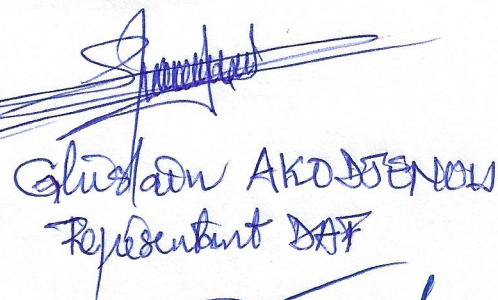 Ghislain AKODJENOU
Représentant DAF